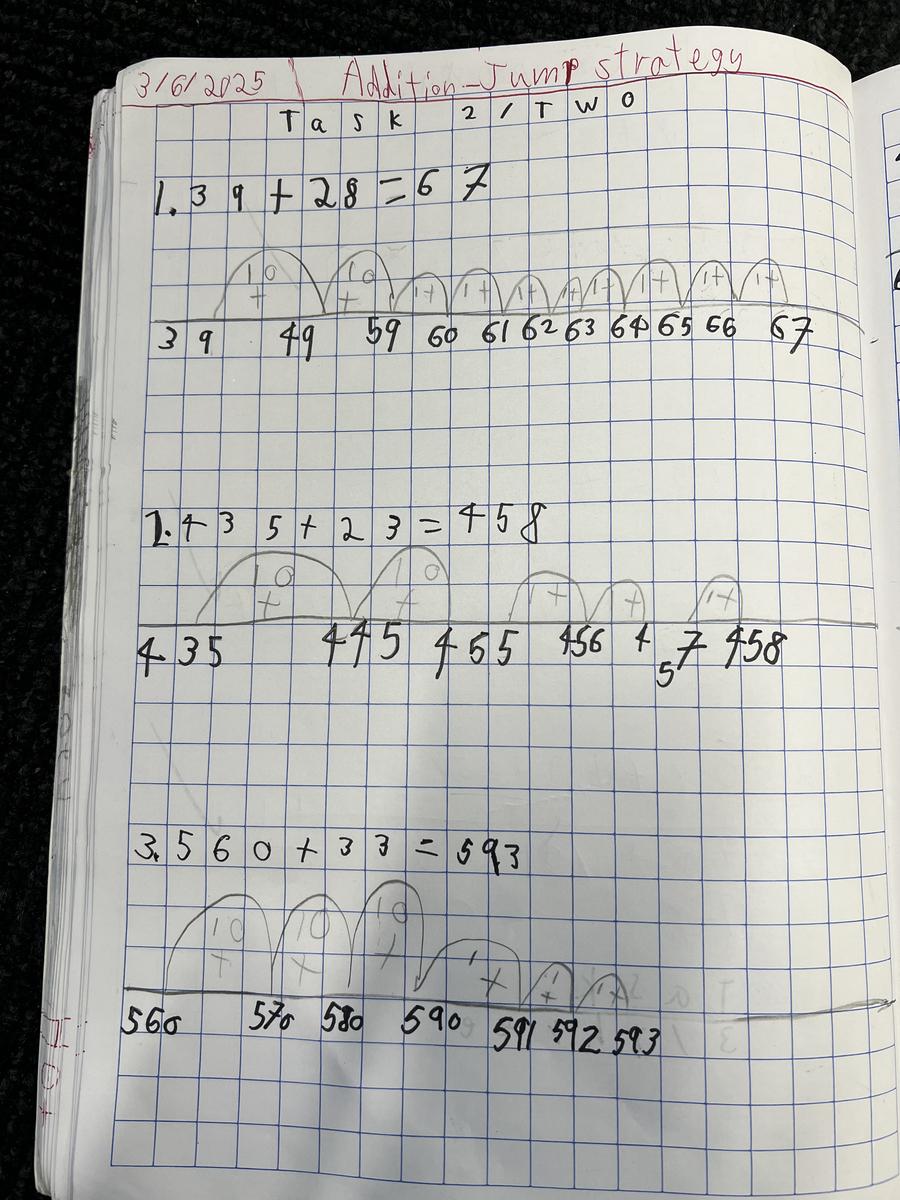 3/6/2025 Addition-Jump strategy
Task 2/TWO
1. 39+28=67
10 10 1+ 1+ 1+ 1+ 1+ 1+ 1+ 1+
+ +
39 49 59 60 61 62 63 64 65 66 67
2. 435+23=458
10 10 1+ 1+ 1+
+ +
435 445 455 456 457 458
3. 560+33=593
10 10 10 1+ 1+ 1+
+ + +
560 570 580 590 591 592 593